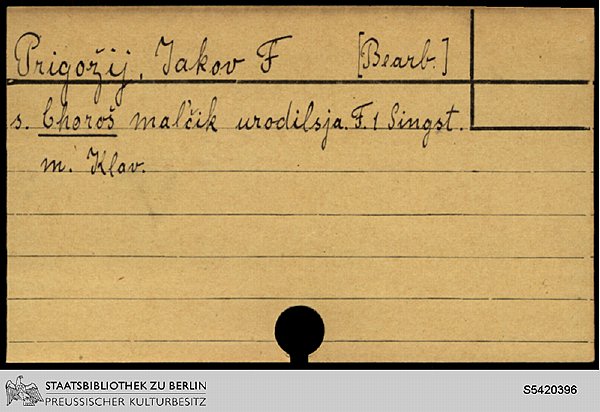 Prigožij, Jakov F [Bearb.]
s. Choroš malčik urodilsja. F. 1 Singst.
m. Klav.
STAATSBIBLIOTHEK ZU BERLIN
PREUSSISCHER KULTURBESITZ
S5420396